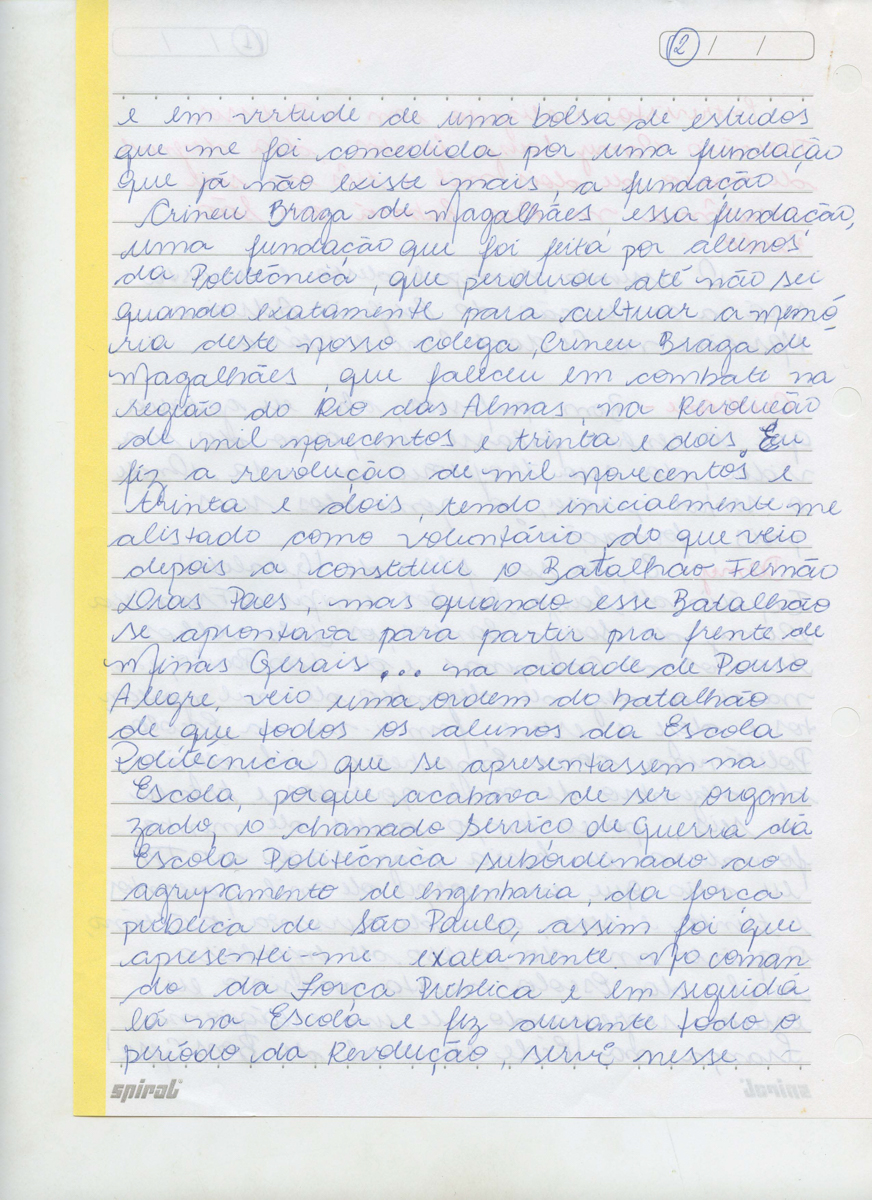 2 / /
e em virtude de uma bolsa de estudos
que me foi concedida, por uma fundação
que já não existe mais, a fundação
Crineu Braga de Magalhães, essa fundação,
uma fundação que foi feita por alunos
da Politécnica, que perdurou até não sei
quando exatamente para cultuar a memó
ria deste nosso colega, Crineu Braga de
Magalhães, que faleceu em combate na
região do Rio das Almas, na Revolução
de mil novecentos e trinta e dois. Eu
fiz a revolução de mil novecentos e
trinta e dois, tendo inicialmente me
alistado como voluntário, do que veio
depois a constituir o Batalhão Fernão
Dias Paes, mas quando esse Batalhão
se aprontava para partir pra frente de
Minas Gerais ... na cidade de Pouso
Alegre, veio uma ordem do batalhão
de que todos os alunos da Escola
Politécnica que se apresentassem na
Escola, porque acabava de ser organi
zado, o chamado Serviço de Guerra da
Escola Politécnica subordenado ao
agrupamento de engenharia, da força
pública de São Paulo, assim foi que
apresentei-me exatamente no coman
do da Força Pública e em seguida
lá na Escola e fiz durante todo o
período da Revolução, servi nesse
spiral